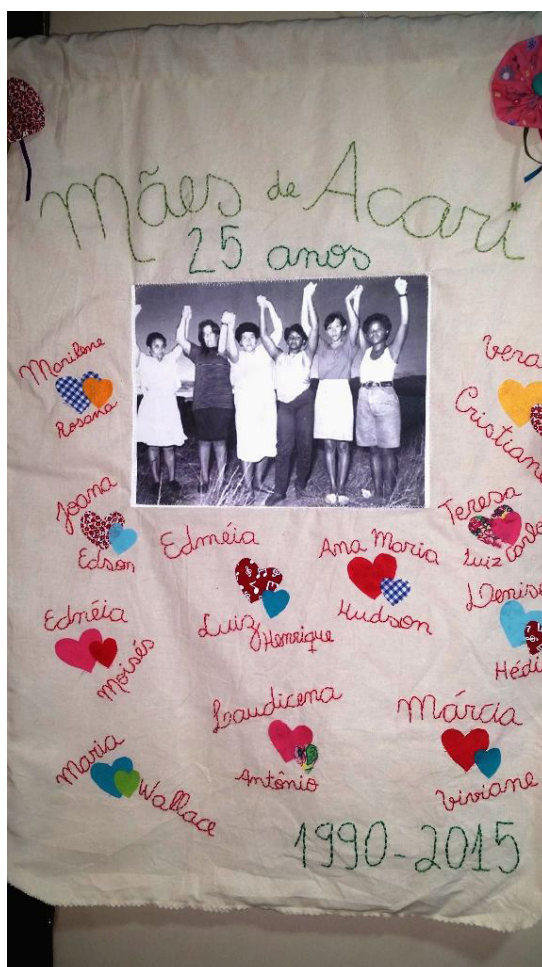 Mães de Acari
25 anos
Marilene
Rosana
Vera
Cristiane
Joana
Edson
Edméia
Luiz Henrique
Ana Maria
Hudson
Teresa
Luiz
Ednéia
Moisés
Denise
Hédi
Laudicena
Antônio
Márcia
Viviane
Maria
Wallace
1990-2015